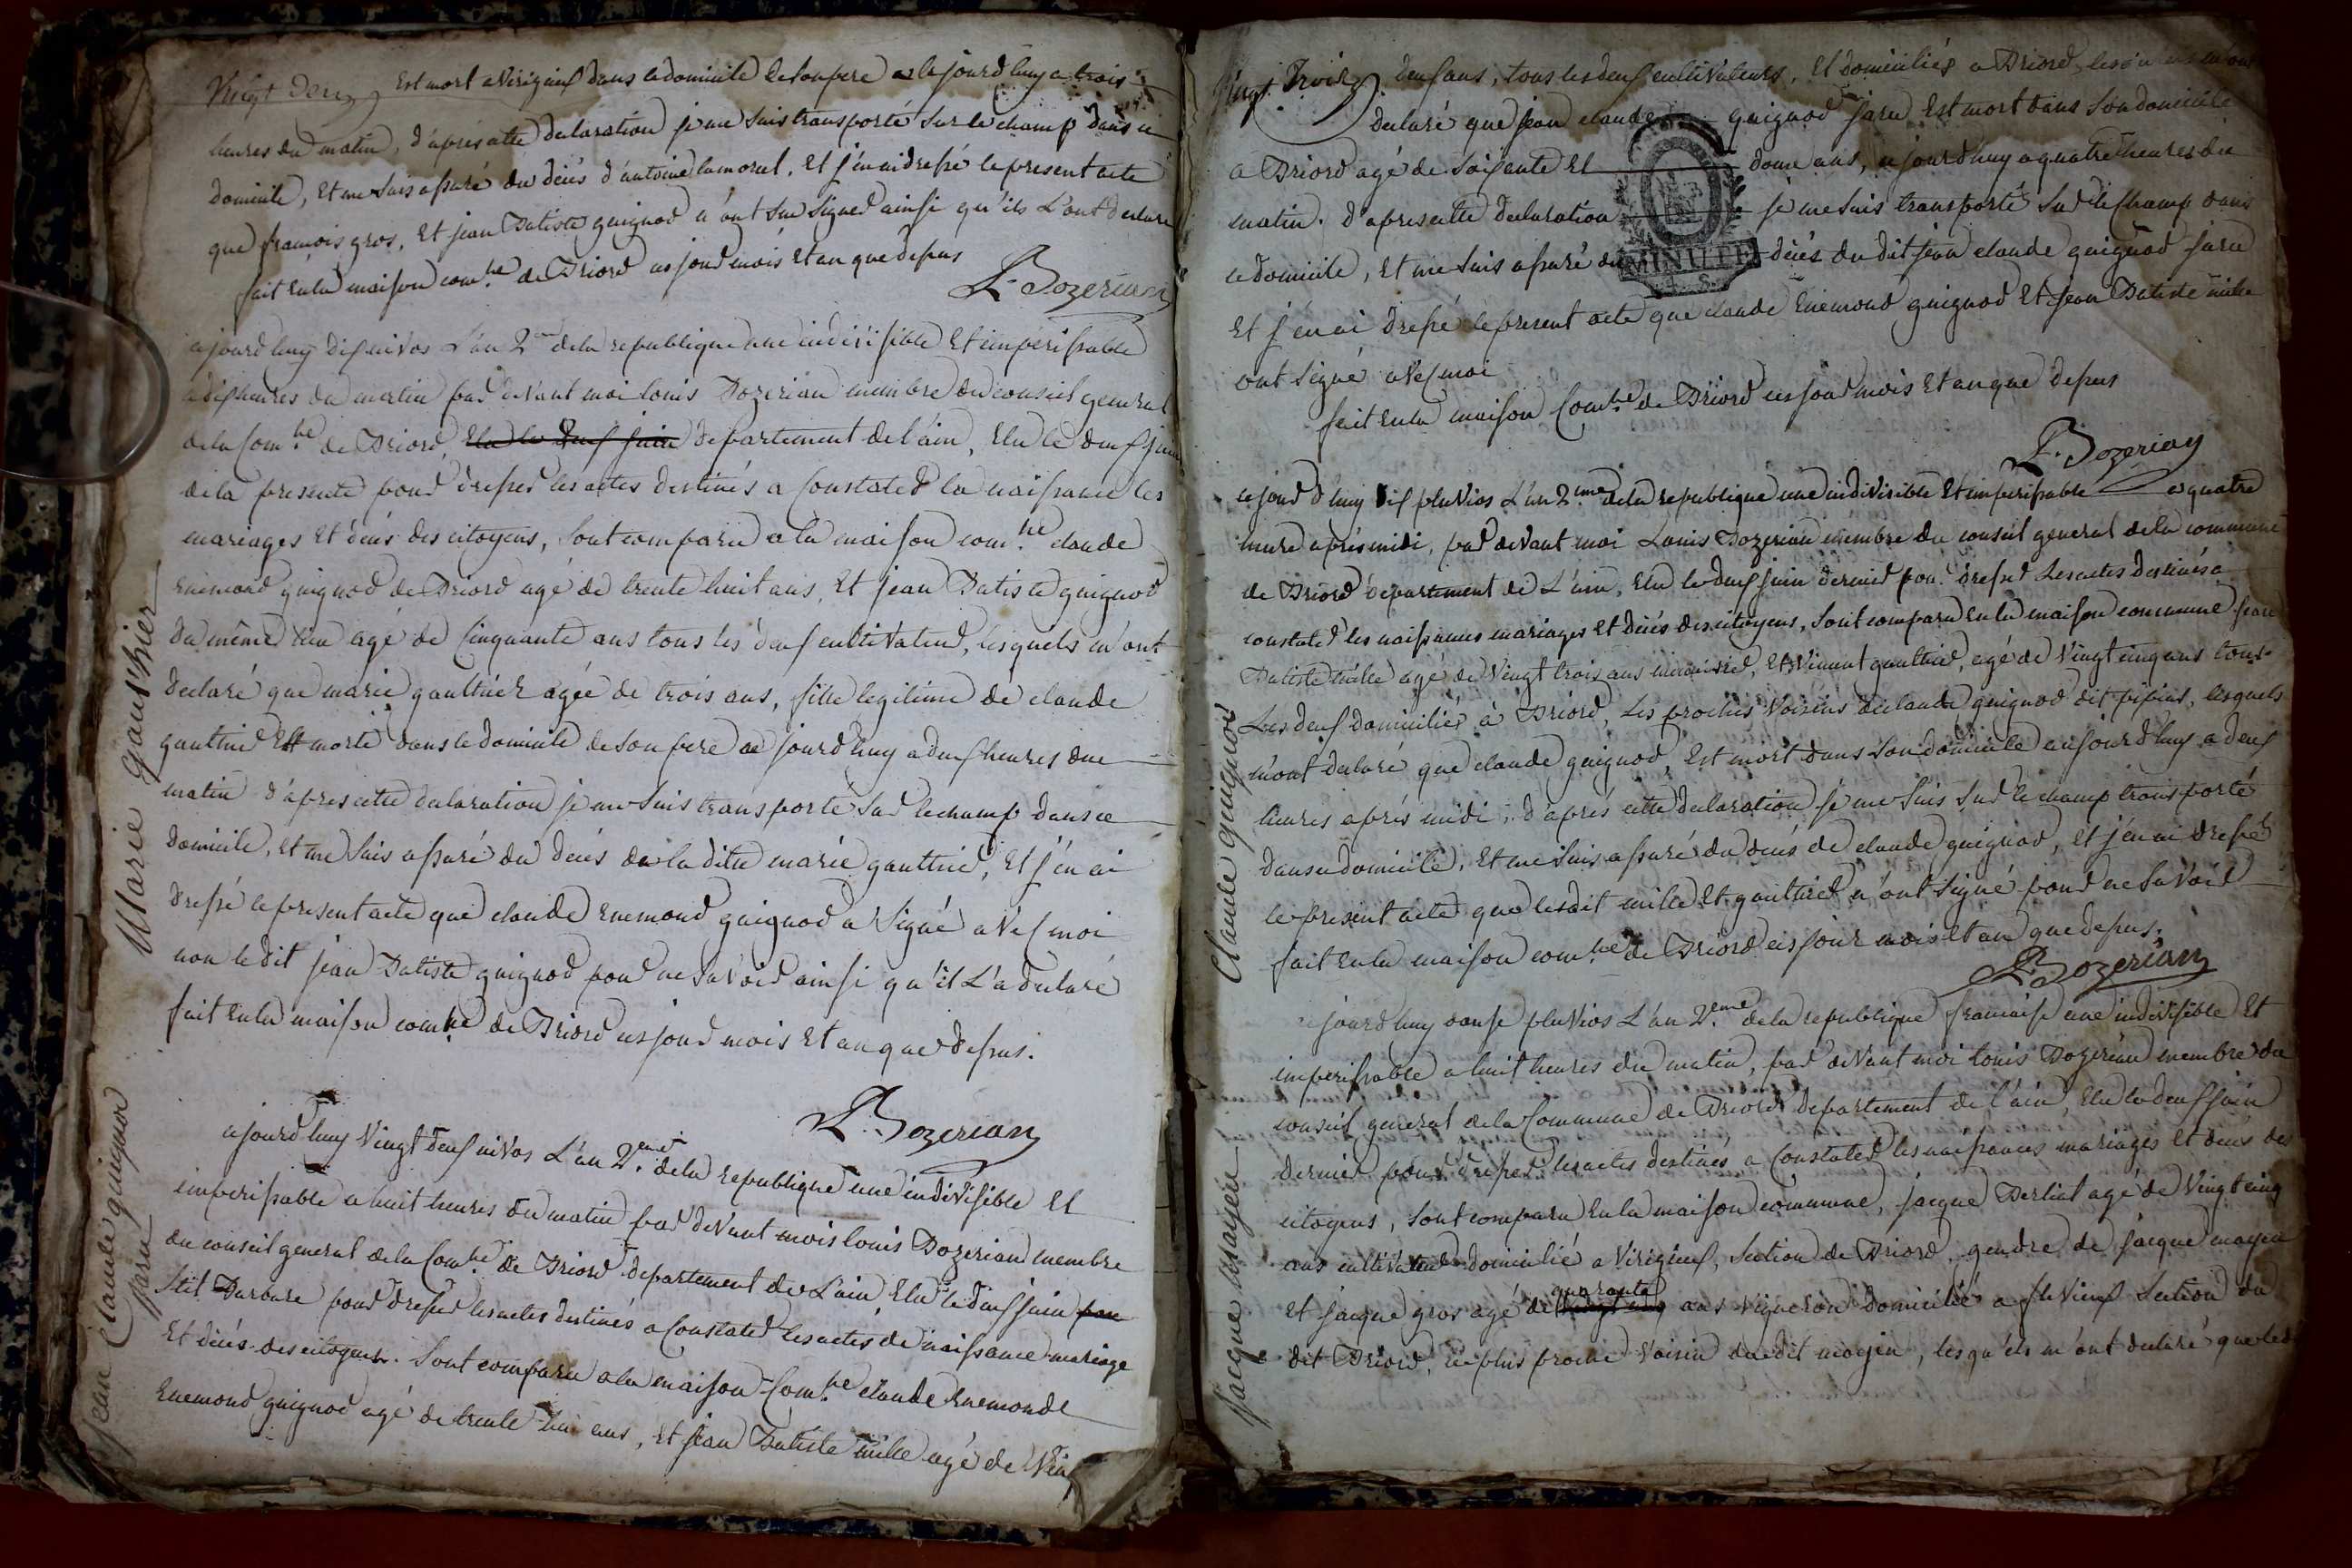 Vingt Deux Est mort a Virigneuf dans le domicile de son pere ce jourd'huy a trois
heures du matin, d'après cette declaration je me suis transporté sur le champ dans ce
domicile, Et me suis assuré du décés d'antoine lamoret, Et j'en ai dressé le present acte
que françois gros, Et jean Batiste guignod n'ont su signer ainsi qu'ils L'ont declaré
fait en la maison com.ne de Briord ces jour mois Et an que depus
L. Bozerian
Marie Gauthier
cejourd'huy dix nivos L'an 2.me de la republique une indivisible Et imperissable
a dix heures du matin par devant moi Louis Bozerian membre du conseil general
de la Com.ne de Briord, Elu le deux juin departement de l'ain, Elu le deux juin
de la presente pour dresser les actes destinés a Constater la naissance les
mariages Et décés des citoyens, sont comparu a la maison com.ne claude
Enemond guignod de Briord agé de trente huit ans, Et jean Batiste guignod
du même lieu agé de Cinquante ans tous les deux cultivateur, lesquels m'ont
declaré que marie gaulthier agée de trois ans, fille legitime de claude
gaulthier Est morte dans le domicile de son pere ce jourd'huy a deux heures du
matin d'après cette declaration je me suis transporté sur le champ dans ce
domicile, Et me suis assuré du décés de la ditte marie gaulthier, Et j'en ai
dressé le present acte que claude Enemond guignod a signé avec moi
non le dit jean Batiste guignod pour ne savoir ainsi qu'il L'a declaré
fait en la maison com.ne de Briord ces jour mois Et an que depus.
L. Bozerian
jean Claude guignod
faru
cejourd'huy Vingt deux nivos L'an 2.eme de la republique une indivisible Et
imperissable a huit heures du matin par devant mois louis Bozerian membre
du conseil general de la Com.ne de Briord departement de L'ain, Elu le deux juin
pour dresser les actes destinés a Constater les actes de naissance mariage
Et décés des citoyens. Sont comparu a la maison Com.ne claude Enemonde
Enemond guignod agé de trente hui ans, Et jean Batiste mille agé de Vin
Vingt Trois deux ans, tous les deux cultivateurs, Et domiciliés a Briord, lesquels m'ont
declaré que jean claude guignod faru Est mort dans son domicile
a Briord agé de soisente Et douze ans, cejourd'huy a quatre heures du
matin. d'apres cette declaration je me suis transporté sur le champ dans
ce domicile, Et me suis assuré du décés du dit jean claude guignod faru
MINUTE
Et j'en ai dressé le present acte que claude Enemond guignod Et jean Batiste mille
ont signé avec moi
fait en la maison Com.ne de Briord ces jour mois Et an que depus
L. Bozerian
Claude guignod
ce jour d'huy dix pluvios L'an 2.me de la republique une indivisible Et imperissable a quatre
heure après midi, par devant moi Louis Bozerian membre du conseil general de la commune
de Briord departement de L'ain, Elu le deux juin dernier pour dresser les actes destinés a
constater les naissances mariages Et décés des citoyens, sont comparu en la maison commune jean
Batiste mille agé de Vingt trois ans menuisier, Et Vincent gaulthier, agé de Vingt cinq ans tous
Les deux domiciliés a Briord, Les proches Voisins de claude guignod dit pipiat, lesquels
m'ont declaré que claude guignod, Est mort dans son domicile aujourd'huy a deux
heures après midi; d'après cette declaration je me suis sur le champ transporté
dans ce domicile, Et me suis assuré du décés de claude guignod, Et j'en ai dressé
le present acte que lesdit mille Et gaulthier n'ont signé pour ne savoir
fait en la maison com.ne de Briord ces jour mois Et an que depus.
L. Bozerian
Jacque Mayen
cejourd'huy onze pluvios L'an 2.eme de la republique francaise une indivisible Et
imperissable a huit heures du matin, par devant moi Louis Bozerian membre du
conseil general de la Commune de Briord departement de l'ain, Elu le deux juin
dernier pour dresser les actes destinés a Constater les naissances mariages et décés des
citoyens, sont comparu En la maison commune, jacque Berliat agé de Vingt cinq
ans cultivateur domicilié a Virigneuf, section de Briord, gendre de jacque mayen
Et jacque gros agé de quarante ans vigneron domicilié a Section du
dit Briord, le plus proche voisin du dit mayen, lesquels m'ont declaré que led